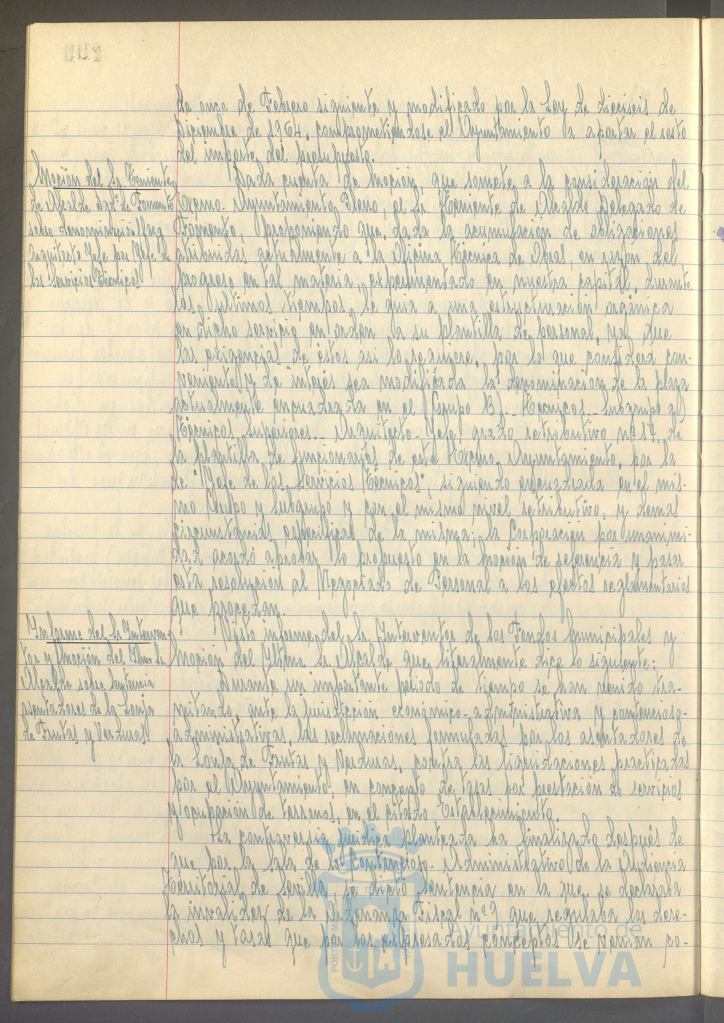 de once de Febrero siguiente y modificado por la Ley de dieciséis de
Diciembre de 1964, comprometiéndose el Ayuntamiento a aportar el resto
del importe del presupuesto.
Moción del Sr. Teniente
de Alcalde Dele. de Fomento
sobre denominación plaza
Arquitecto Jefe por Jefe de
los Servicios Técnicos
Dada cuenta de moción, que somete a la consideración del
Excmo. Ayuntamiento Pleno, el Sr. Teniente de Alcalde Delegado de
Fomento, proponiendo que, dada la acumulación de obligaciones
atribuidas actualmente a la Oficina Técnica de Obras, en razón del
progreso en tal materia experimentado en nuestra capital, durante
los últimos tiempos, se guía a una estructuración orgánica
en dicho servicio en orden a su plantilla de personal, ya que
las exigencias de éstos así lo requiere, por lo que considera con-
veniente y de interés sea modificada la denominación de la plaza
actualmente encuadrada en el Grupo B).- Técnicos.- Subgrupo a)
Técnicos Superiores.- Arquitecto-Jefe, grado retributivo nº 17, de
la plantilla de funcionarios de este Excmo. Ayuntamiento, por la
de "Jefe de los Servicios Técnicos", siguiendo encuadrada en el mis-
mo Grupo y Subgrupo y con el mismo nivel retributivo, y demás
circunstancias específicas de la misma; la Corporación por unanimi-
dad acordó aprobar lo propuesto en la moción de referencia y pasar
esta resolución al Negociado de Personal a los efectos reglamentarios
que procedan.
Informe del Sr. Interven-
tor y Moción del Ilmo. Sr.
Alcalde sobre
asentadores de la Lonja
de Frutas y Verduras
Visto informe del Sr. Interventor de los Fondos municipales y
moción del Iltmo. Sr. Alcalde que literalmente dice lo siguiente:
Durante un importante período de tiempo se han venido tra-
mitando, ante la jurisdicción económico-administrativa y contencioso-
administrativas, las reclamaciones formuladas por los asentadores de
la Lonja de Frutas y Verduras, contra las liquidaciones practicadas
por el Ayuntamiento, en concepto de tasas por prestación de servicios
y ocupación de terrenos, en el citado Establecimiento.
La controversia jurídica planteada ha finalizado después de
que por la Sala de lo Contencioso-Administrativo de la Audiencia
Territorial de Sevilla se dictó sentencia en la que se declaraba
la invalidez de la Ordenanza Fiscal nº 9 que regulaba los dere-
chos y tasas que por los expresados conceptos se venían co-
Ayuntamiento de
HUELVA